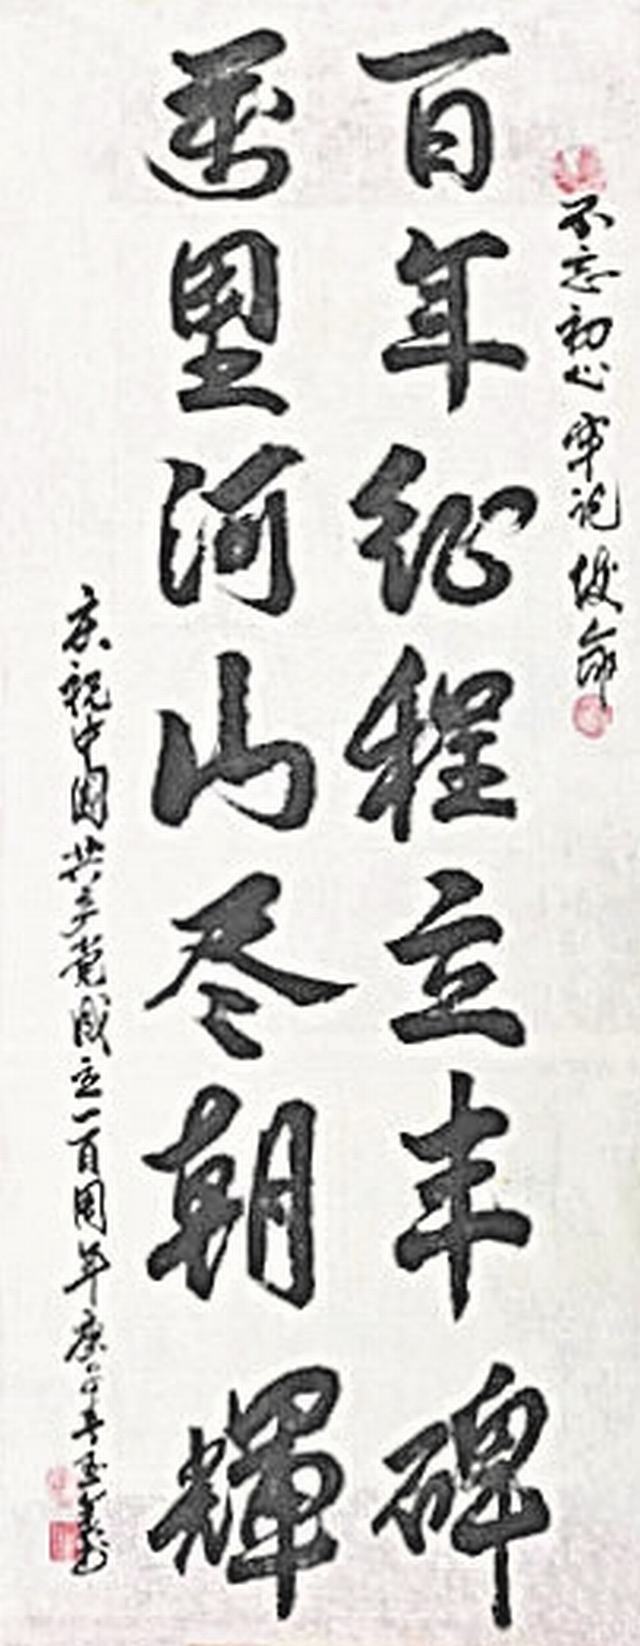 不忘初心牢记使命
百年征程立丰碑
万里河山尽朝辉
庆祝中国共产党成立一百周年庚子年